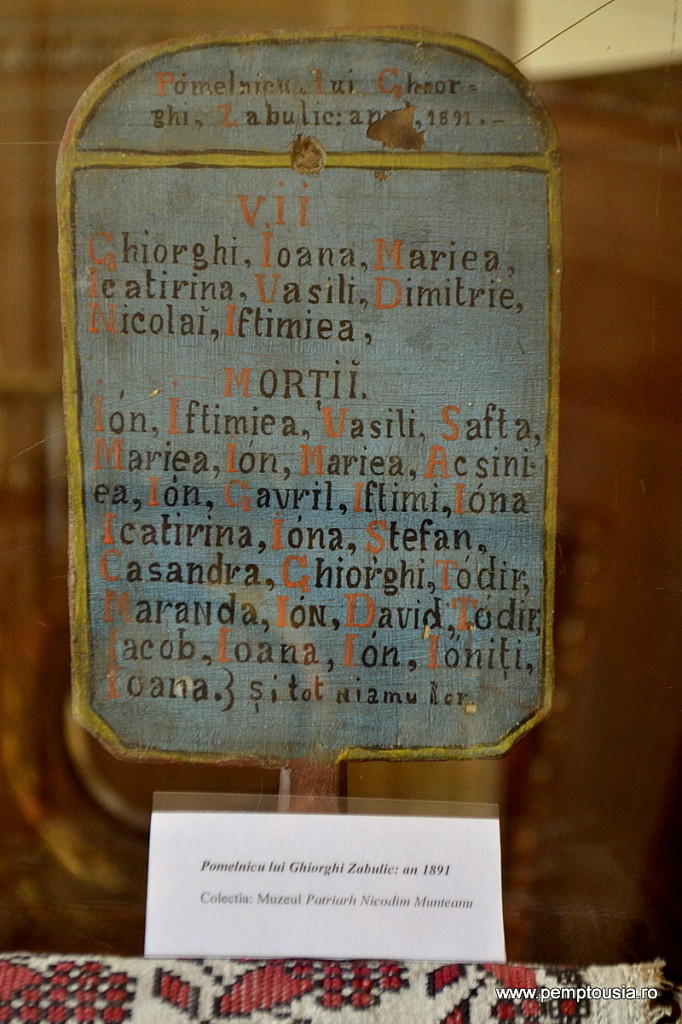 Pomelnicu lui Ghior=
ghi, Zabulic: anul, 1891.–
VII
Ghiorghi, Ioana, Mariea,
Icatirina, Vasili, Dimitrie,
Nicolaĭ, Iftimiea,
MORȚIĬ.
Ión, Iftimiea, Vasili, Safta,
Mariea, Ión, Mariea, Acsini-
ea, Ión, Gavril, Iftimi, Ióna
Icatirina, Ióna, Ștefan,
Casandra, Ghiorghi, Tódir,
Maranda, IóN, David, Tódir,
Iacob, Ioana, Ión, Ioniți,
Ioana.} Și tot niamu lor
Pomelnicu lui Ghiorghi Zabulic: an 1891
Colectia: Muzeul Patriarh Nicodim Munteanu
www.pemptousia.ro